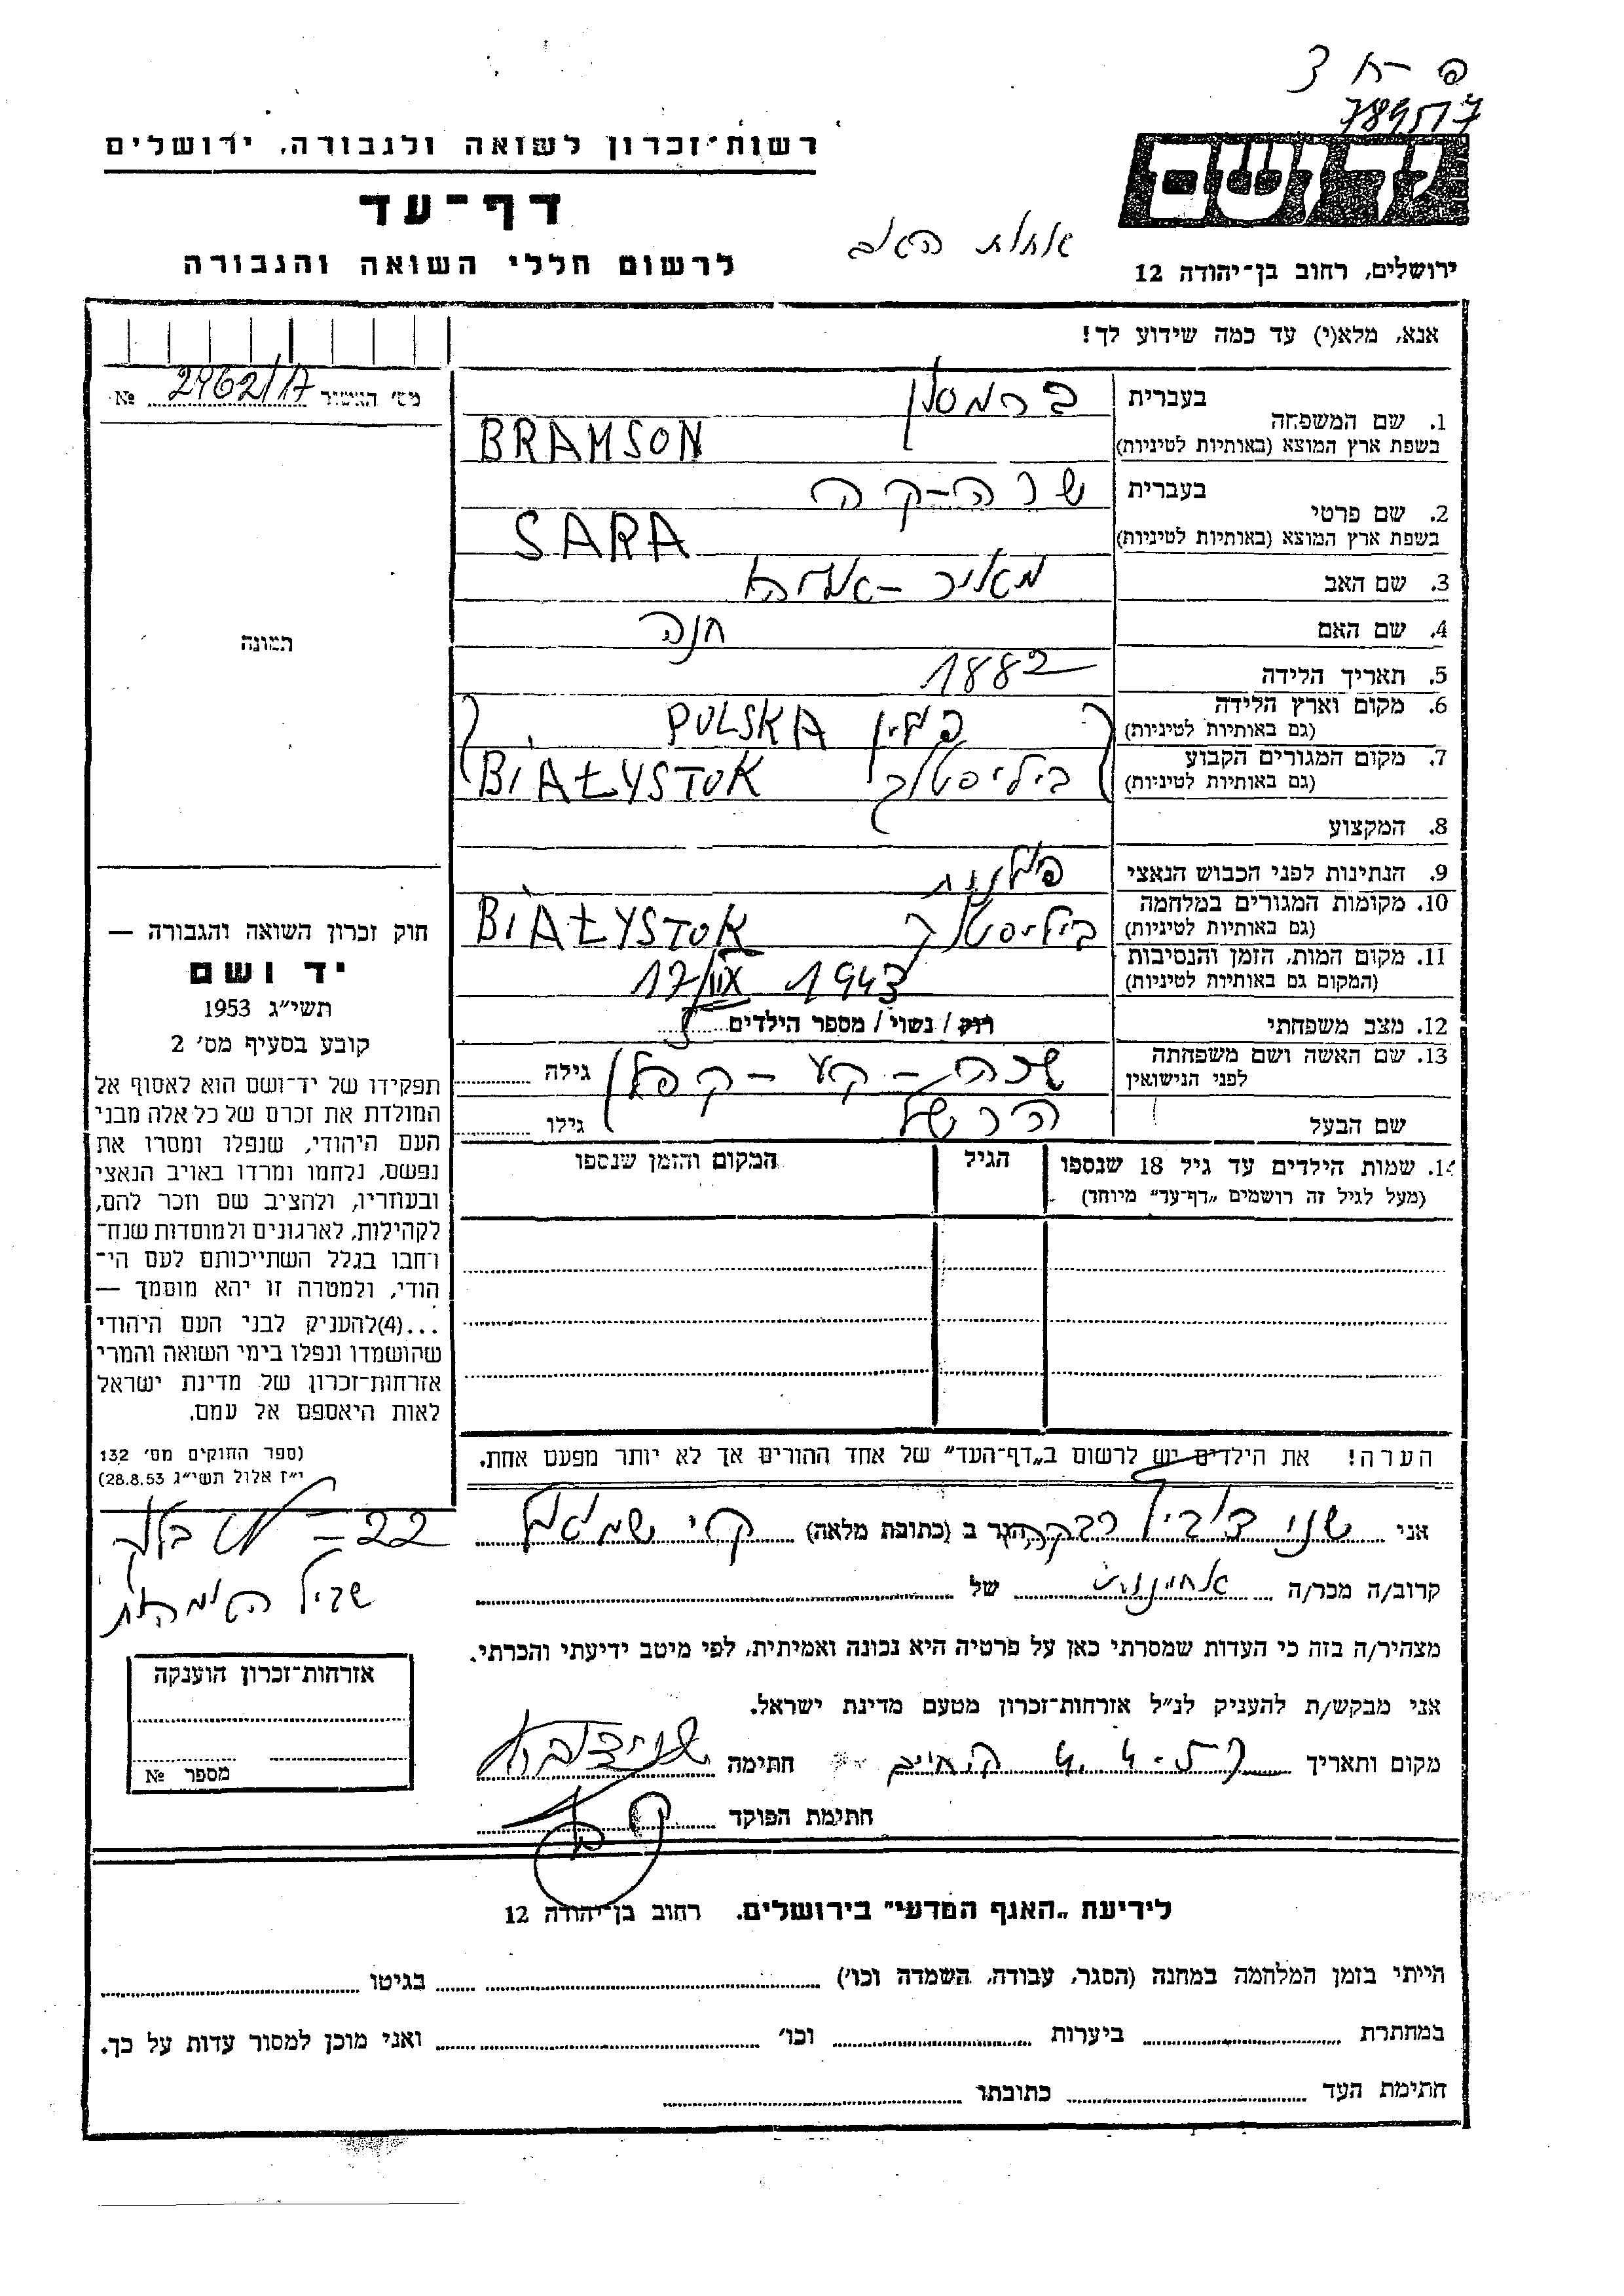 789517
רשות־זכרון לשואה ולגבורה, ירושלים
דף־עד
לרשום חללי השואה והגבורה
יד ושם
ירושלים, רחוב בן־יהודה 12
אנא, מלא(י) עד כמה שידוע לך!
מס׳ האשור № 2962/17
1. שם המשפחה
בעברית ברמסון
בשפת ארץ המוצא (באותיות לטיניות) BRAMSON
2. שם פרטי
בעברית שרה-קה
בשפת ארץ המוצא (באותיות לטיניות) SARA
3. שם האב מאיר -
4. שם האם חנה
5. תאריך הלידה 1882
6. מקום וארץ הלידה (גם באותיות לטיניות) פולין POLSKA
7. מקום המגורים הקבוע (גם באותיות לטיניות) ביליסטוק BIAŁYSTOK
8. המקצוע
9. הנתינות לפני הכבוש הנאצי פולנית
10. מקומות המגורים במלחמה (גם באותיות לטיניות) ביליסטוק BIAŁYSTOK
11. מקום המות, הזמן והנסיבות (המקום גם באותיות לטיניות) 1943
12. מצב משפחתי רווק / נשוי / מספר הילדים
13. שם האשה ושם משפחתה לפני הנישואין שרה - קה - קפלן גילה
שם הבעל הרשל גילו
14. שמות הילדים עד גיל 18 שנספו הגיל המקום והזמן שנספו
(מעל לגיל זה רושמים „דף־עד״ מיוחד)
תמונה
חוק זכרון השואה והגבורה —
יד ושם
תשי״ג 1953
קובע בסעיף מס׳ 2
תפקידו של יד־ושם הוא לאסוף אל
המולדת את זכרם של כל אלה מבני
העם היהודי, שנפלו ומסרו את
נפשם, נלחמו ומרדו באויב הנאצי
ובעוזריו, ולהציב שם וזכר להם,
לקהילות, לארגונים ולמוסדות שנח־
רחבו בגלל השתייכותם לעם הי־
הודי, ולמטרה זו יהא מוסמך —
...(4)להעניק לבני העם היהודי
שהושמדו ונפלו בימי השואה והמרי
אזרחות־זכרון של מדינת ישראל
לאות היאספם אל עמם.
(ספר החוקים מס׳ 132
י״ז אלול תשי״ג 28.8.53)
הערה! את הילדים יש לרשום ב„דף־העד״ של אחד ההורים אך לא יותר מפעם אחת.
אני רבקה הגר ב (כתובת מלאה) קרי שמואל
קרוב/ה מכר/ה אחיינית של
מצהיר/ה בזה כי העדות שמסרתי כאן על פרטיה היא נכונה ואמיתית, לפי מיטב ידיעתי והכרתי.
אני מבקש/ת להעניק לנ״ל אזרחות־זכרון מטעם מדינת ישראל.
מקום ותאריך חתימה
חתימת הפוקד
אזרחות־זכרון הוענקה
מספר №
לידיעת „האגף המדעי״ בירושלים. רחוב בן־יהודה 12
הייתי בזמן המלחמה במחנה (הסגר, עבודה, השמדה וכו׳) בגיטו
במחתרת ביערות וכו׳ ואני מוכן למסור עדות על כך.
חתימת העד כתובתו